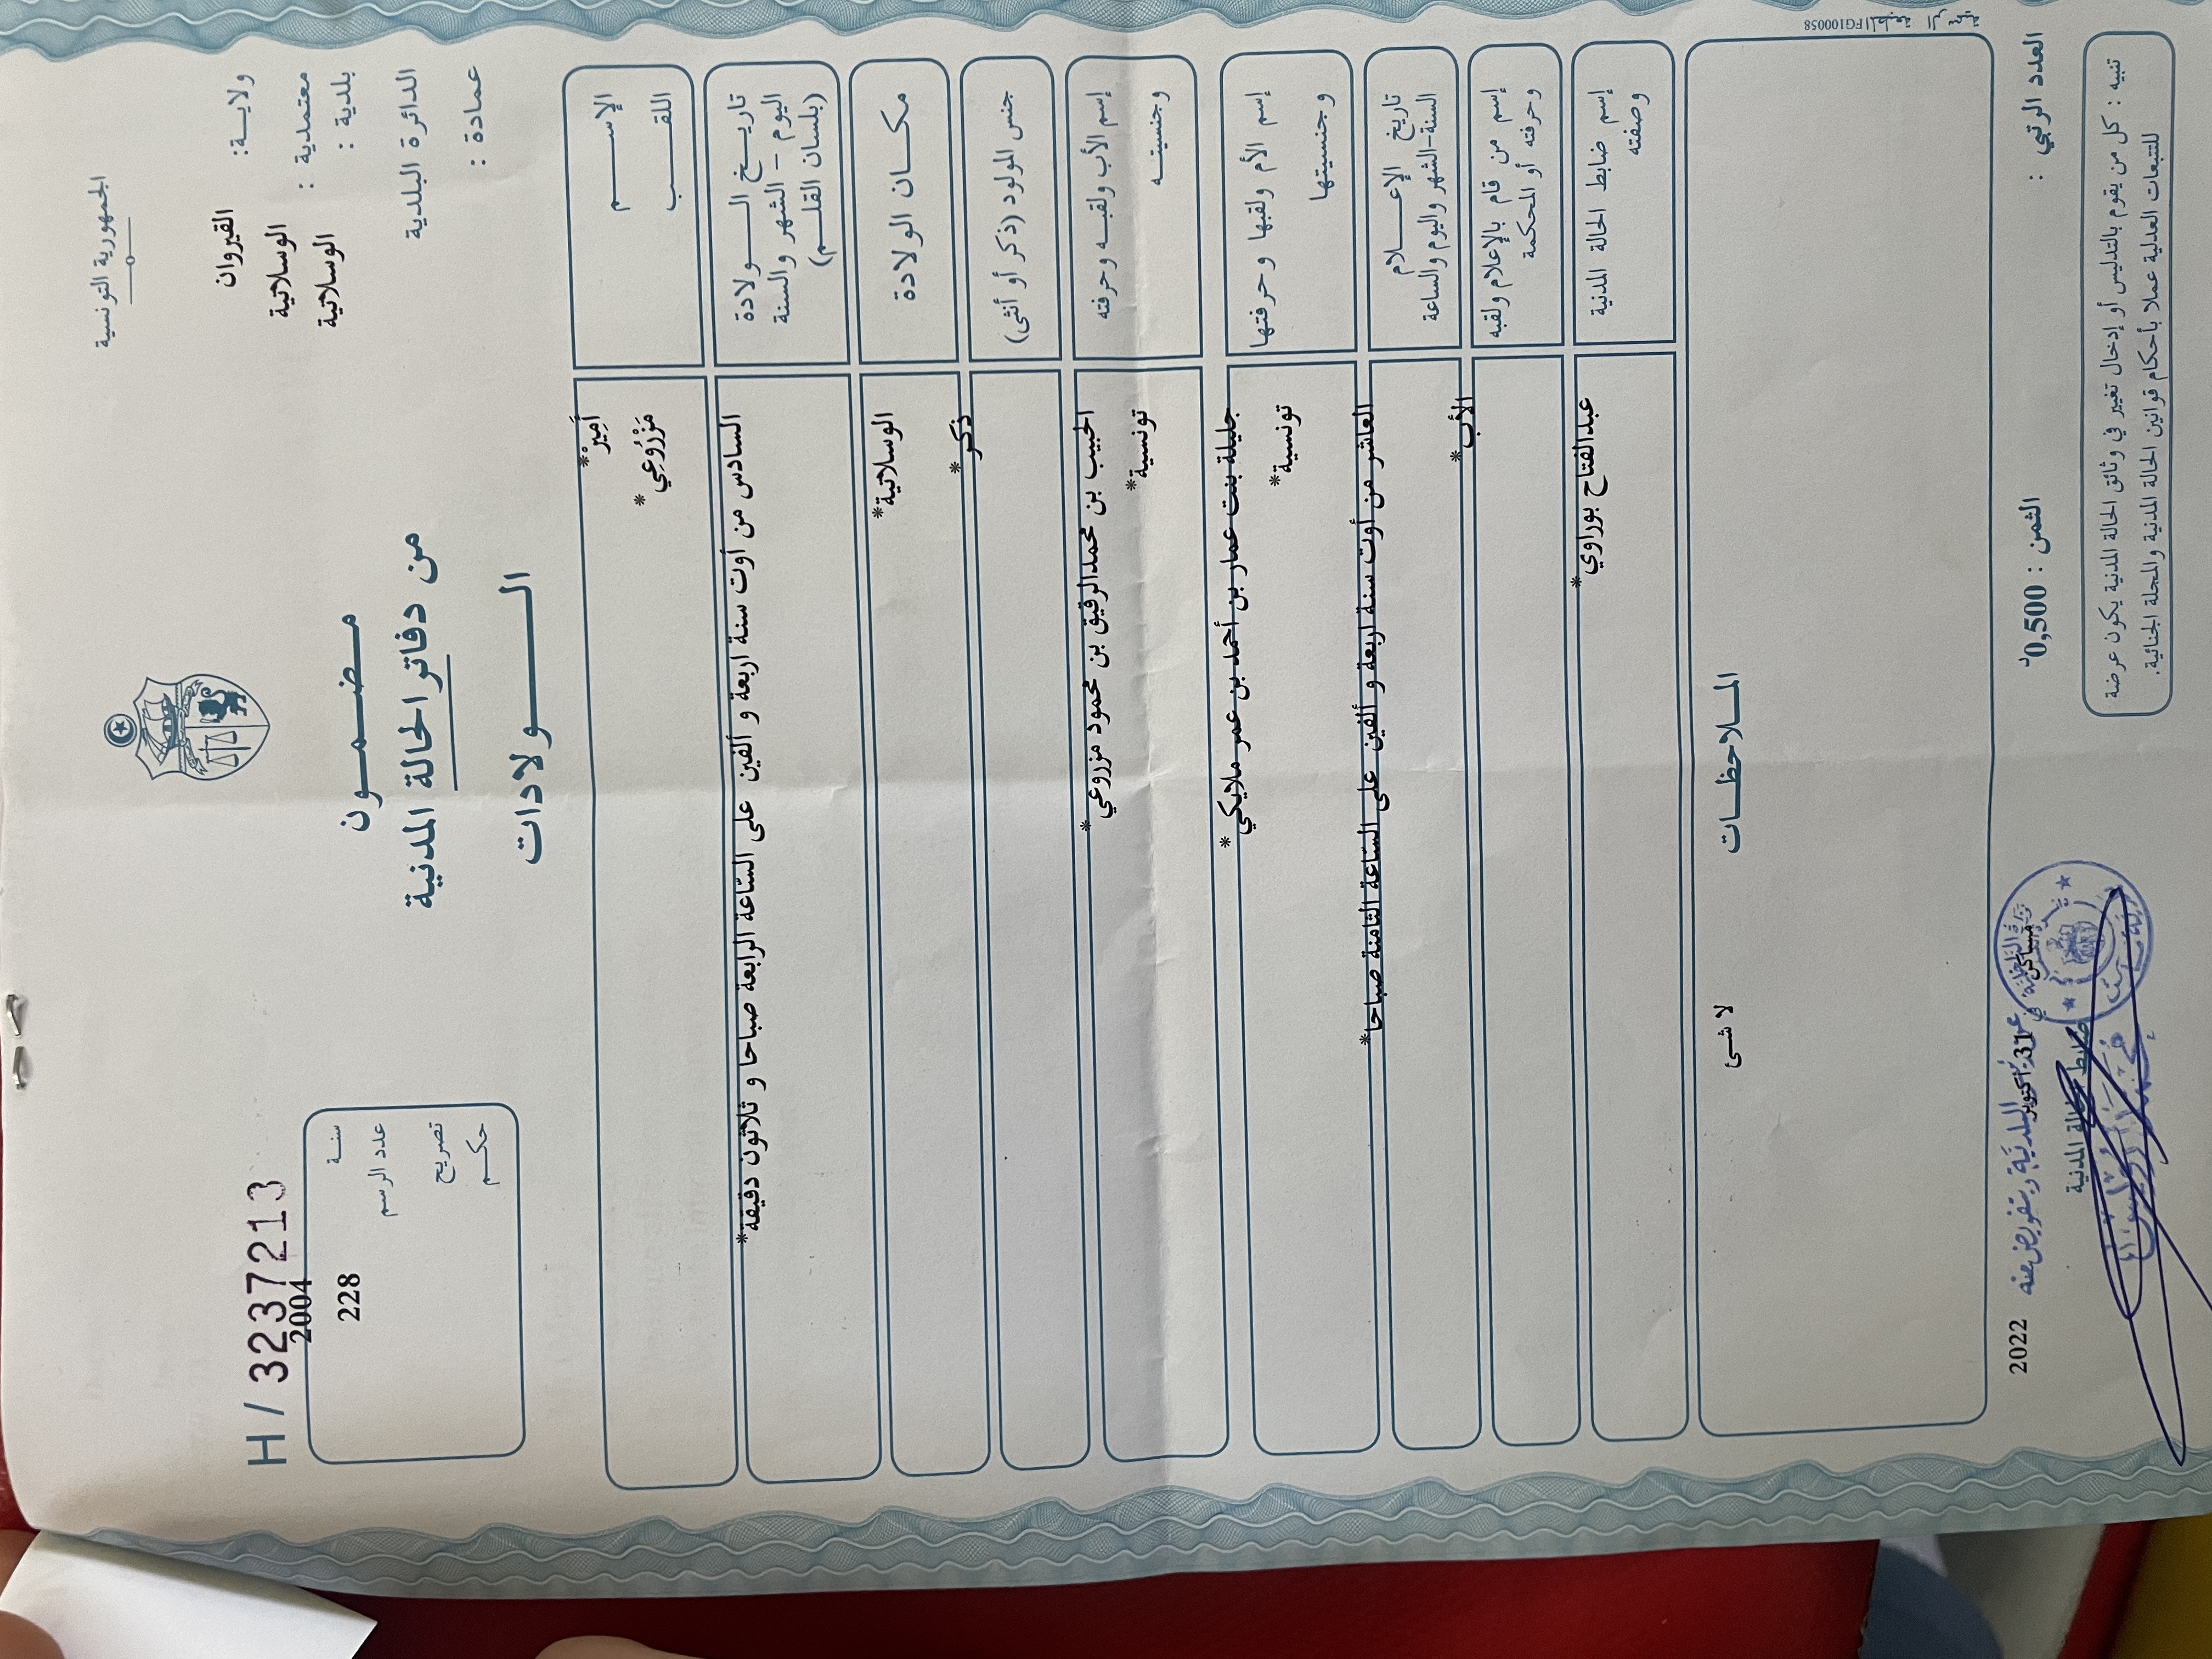 الجمهورية التونسية
ولايـــة: القيروان
معتمدية : الوسلاتية
بلدية : الوسلاتية
الدائرة البلدية
عمادة :
مـــضـــمـــون
من دفاتر الحالة المدنية
الـــــولادات
H / 3237213
سنـــة 2004
عدد الرسم 228
تصريح
حكـــم
الإســـــم أَمِيرْ*
اللقـــــب مَزْرُوعِي*
تاريـــخ الـــــولادة
اليوم - الشهر والسنة
(بلسان القلـــم)
السادس من أوت سنة اربعة و ألفين على السّاعة الرابعة صباحا و ثلاثون دقيقة*
مكـــان الولادة الوسلاتية*
جنس المولود (ذكر أو أنثى) ذكر*
إسم الأب ولقبـــه وحرفته الحبيب بن محمدالرفيق بن محمود مزروعي*
وجنسيتـــه تونسية*
إسم الأم ولقبها وحرفتها جليلة بنت عمار بن أحمد بن عمر ملايكي*
وجنسيتها تونسية*
تاريخ الإعـــلام
السنة-الشهر واليوم والساعة
العاشر من أوت سنة اربعة و ألفين على السّاعة الثامنة صباحا*
إسم من قام بالإعلام ولقبه
وحرفته أو المحكمة
الأب*
إسم ضابط الحالة المدنية
وصفته
عبدالفتاح بوراوي*
المـــلاحظـــات
لا شئ
المطبعة الرسمية FG100058
العدد الرتبي :
الثمن : 0,500د
مساكن في 31 أكتوبر 2022
ضابط الحالة المدنية
البلدية وبتفويض منه
تنبيه : كل من يقوم بالتدليس أو إدخال تغيير في وثائق الحالة المدنية يكون عرضة
للتتبعات العدلية عملا بأحكام قوانين الحالة المدنية والمجلة الجنائية.